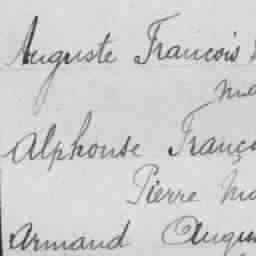 Auguste Francois
Ma
Alphonse Franço
Pierre Ma
Armand Augu